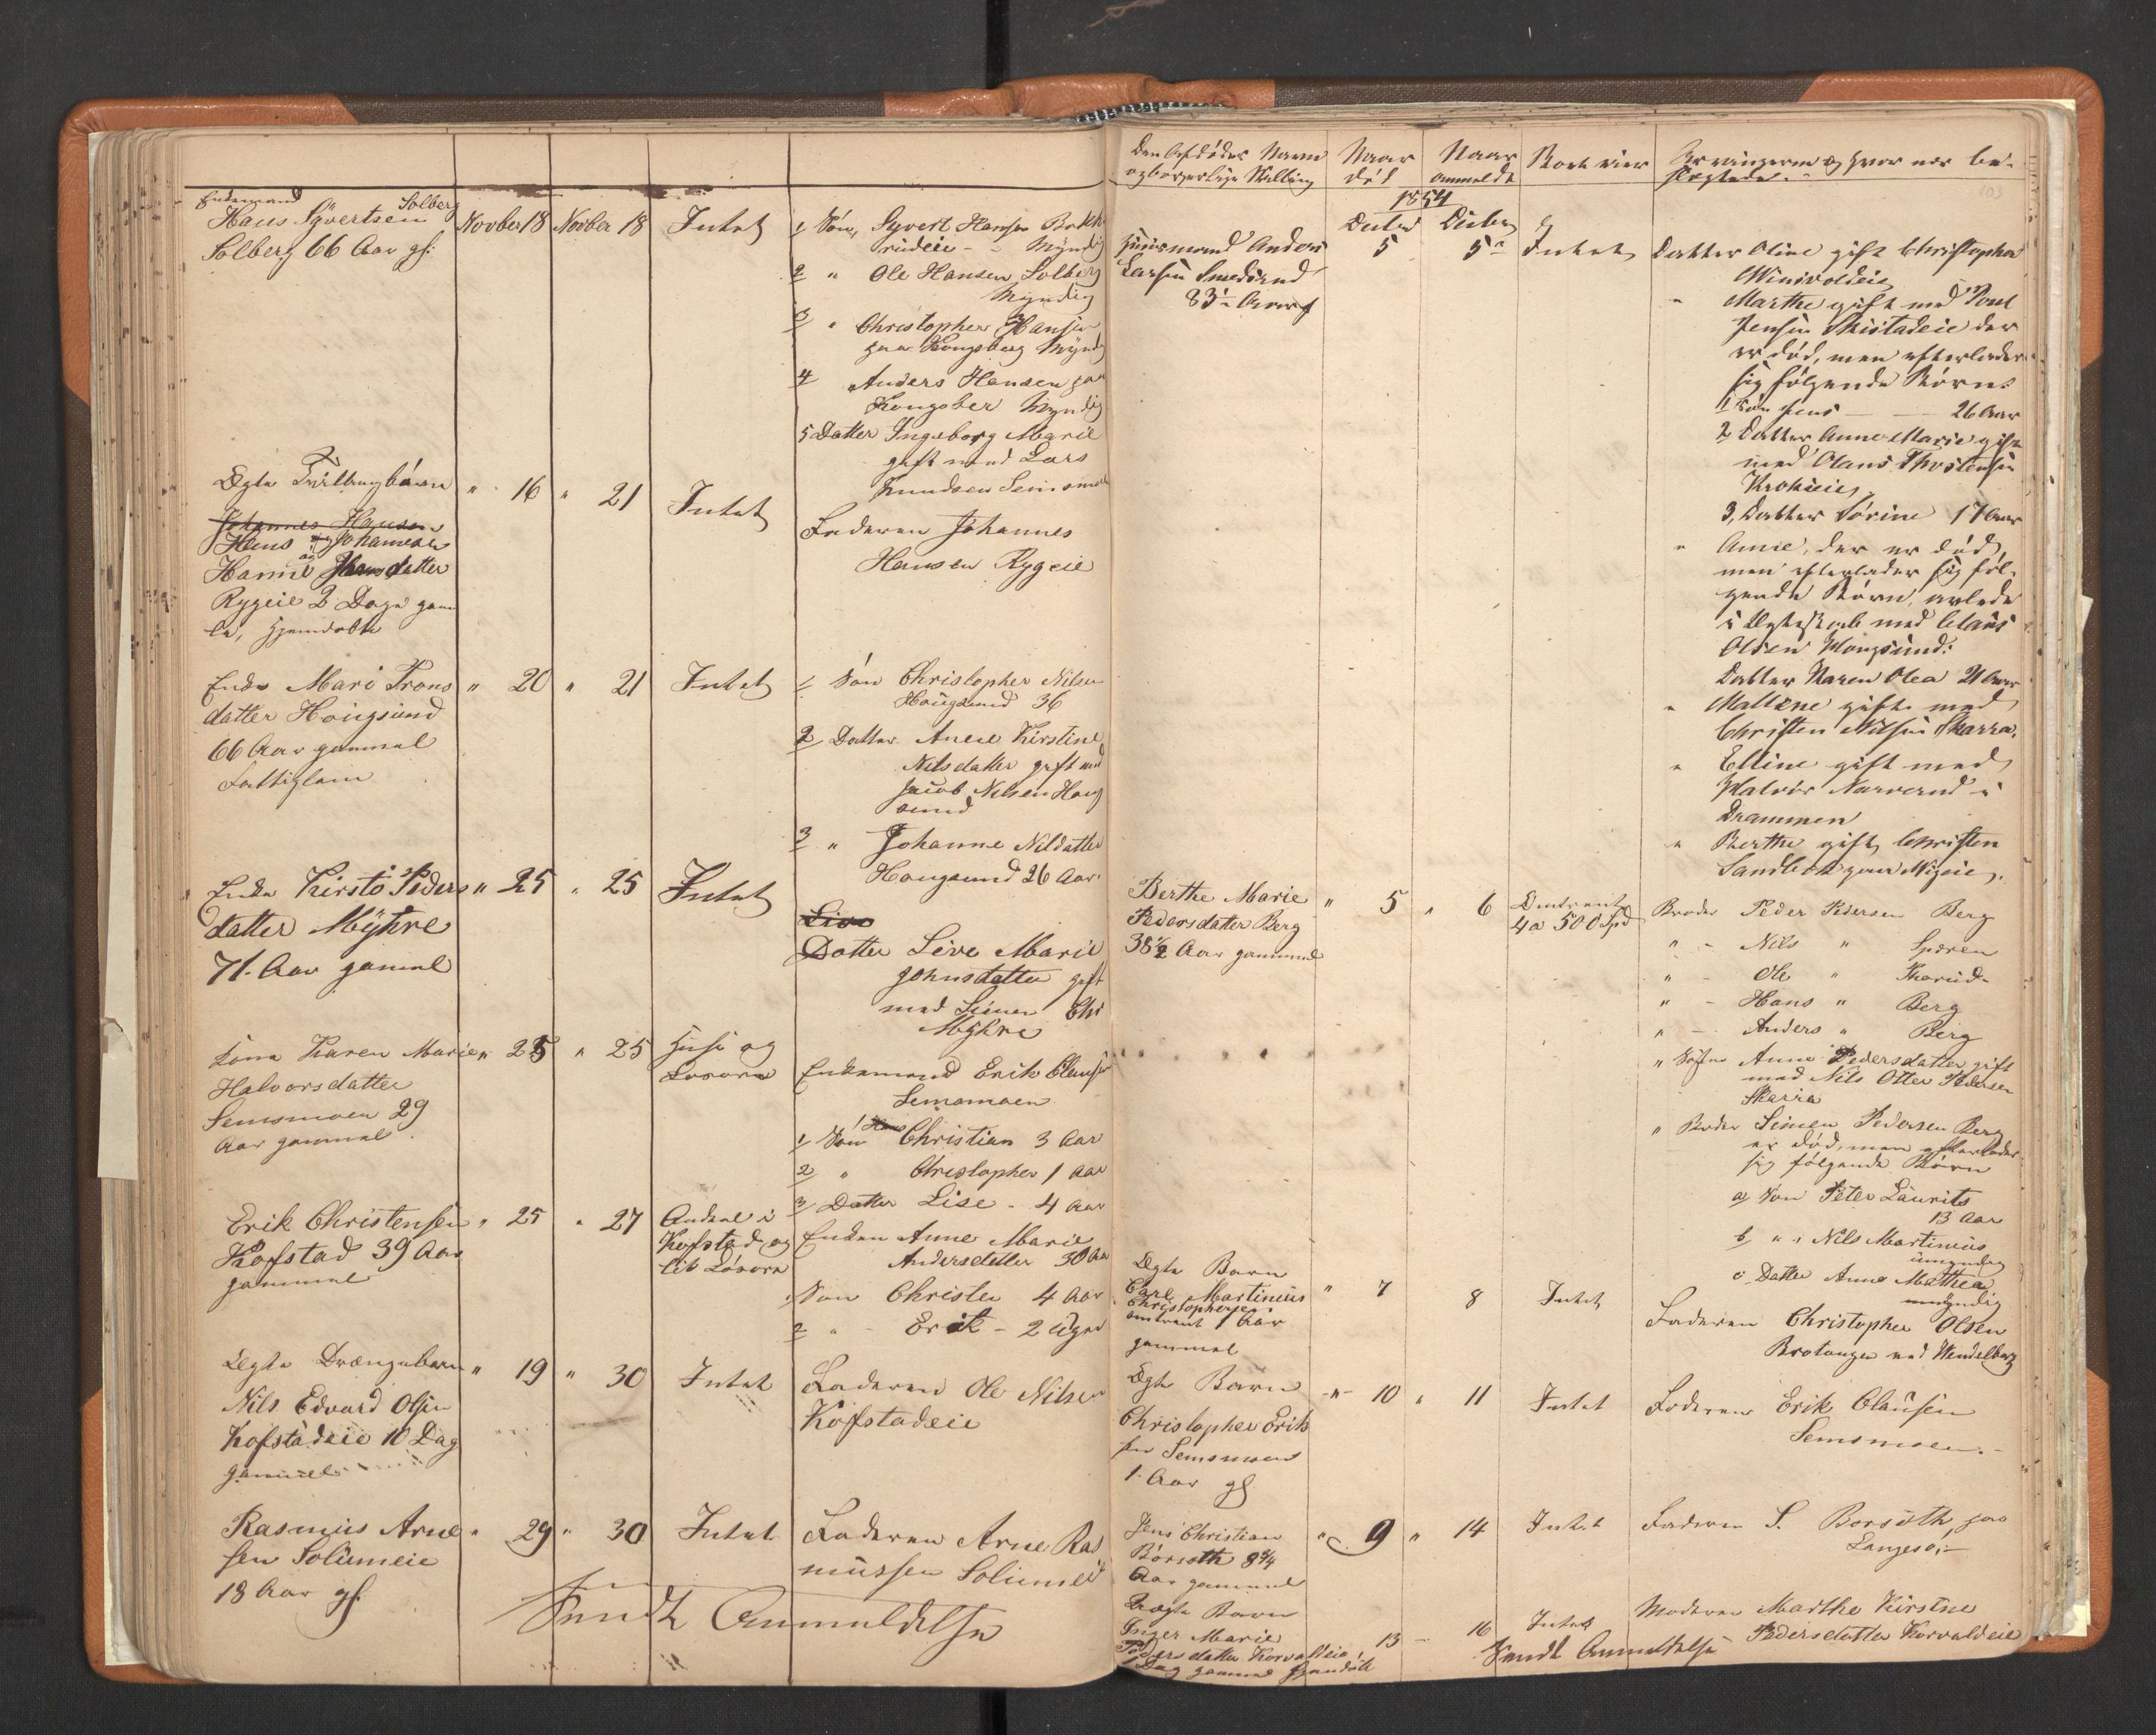 Enkemand Solberg
Hans Syvertsen
Solberg 66 Aar gl.
Novber 18
Novber 18
Intet
1 Søn, Syvert Hansen Bakke
rudeie - Myndig
2 " Ole Hansen Solberg
Myndig
3 " Christopher Hansen
paa Kongsberg Myndig
4 Anders Hansen paa
Kongsber Myndig
5 Datter Ingeborg Marie
gift med Lars
Knudsen Semsmoe
Ægte Tvillingbørn
" 16 " 21 Intet
Johannes Hansen
Hans Johannesen
og
Hanne Hansdatter
Rygeie 2 Dage gam
le, hjemdøbte
Faderen Johannes
Hansen Rygeie
Enke Mari Trons
datter Hougsund
66 Aar gammel
Fattiglem
" 20 " 21 Intet
1 Søn Christopher Nilsen
Hougsund 36
2 Datter Anne Kirstine
Nilsdatter gift med
Jacob Nilsen Houg
sund
3 " Johanne Nilsdatter
Hougsund 26 Aar
Enke Kirsti Peders
datter Myhre
71 Aar gamel
" 25 " 25 Intet
Live
Datter Live Marie
Johnsdatter gift
med Simen Chr
Myhre
Kone Karen Marie
Halvorsdatter
Semsmoen 29
Aar gammel
" 25 " 25 Huse og
Løsøre
Enkemand Erik Clausen
Semsmoen
1 Søn Hans Christian 3 Aar
2 " Christopher 1 Aar
3 Datter Lise - 4 Aar
Erik Christensen
Kofstad 39 Aar
gammel
" 25 " 27 Andeel i
Kofstad og
lidt Løsøre
Enken Anne Marie
Andersdatter 30 Aar
1 Søn Christen 4 Aar
2 " - Erik - 2 Uger
Ægte Drængebarn
Nils Edvard Olsen
Kofstadeie 10 Dag
gammel
" 19 " 30 Intet
Faderen Ole Nilsen
Kofstadeie
Rasmus Arne
sen Solumeie
18 Aar gl.
" 29 " 30 Intet
Faderen Arne Ras
mussen Solumeie
Sendt Anmeldelse
Den Afdødes Navn
og borgerlige Stilling
Naar
død
Naar
anmeldt
Boets
Arvingerne og hvor nær be-
slægtede.
103
1854
Huusmand Anders
Larsen Smedsrud
83 Aar gl
Decbr
5
Decbr
5
Intet
Datter Oline gift Christopher
" Marthe gift med Poul
Jensen Skistadeie der
er død, men efterlader
sig følgende Børn:
1 Søn Jens - 26 Aar
2 Datter Anne Marie gift
med Olaus Thostensen
Krokeie,
3, Datter Sørine 17 Aar
" Anne, der er død,
men efterlader sig føl-
gende Børn, avlede
i Ægteskab med Claus
Olsen Hougsund:
Datter Karen Olea 21 Aar
" Mallene gift med
Christen Nilsen Skarra,
" Elline gift med
Halvor Narverud i
Drammen
" Berthe gift Christen
Berthe Marie
Pedersdatter Berg
38½ Aar gammel
" 5 " 6 Omtrent
4 a 500 Spd
Broder Peder Pedersen Berg
" - Nils " Speren
" - Ole " Skarud
" - Hans " Berg
" - Anders " Berg
" Søster Anne Pedersdatter gift
med Nils Otter Pedersen
Skarra
" Broder Simen Pedersen Berg
er død, men efterlader
sig følgende Børn
a Søn Peter Laurits
13 Aar
b " " Nils Martinius
umyndig
c Datter Anne Mathea
umyndig
Ægte Barn
Carl Martinius
Christophersen
omtrent 1 Aar
gammel
" 7 8 Intet
Faderen Christopher Olsen
Brotangen ved Wendelborg
Ægte Barn
Christopher Erik
sen Semsmoen
1 Aar gl
" 10 " 11 Intet
Faderen Erik Clausen
Semsmoen.
Jens Christian
Borseth 8¾
Aar gammel
" 9 " 14 Intet
Faderen S. Borseth paa
Langesø
Uægte Barn
Inger Marie
Pedersdatter Korvaldeie
1 Dag gammel hjemdøbt
13 - 16 Intet
Moderen Marthe Kirstine
Pedersdatter Korvaldeie
Sendt Anmeldelse